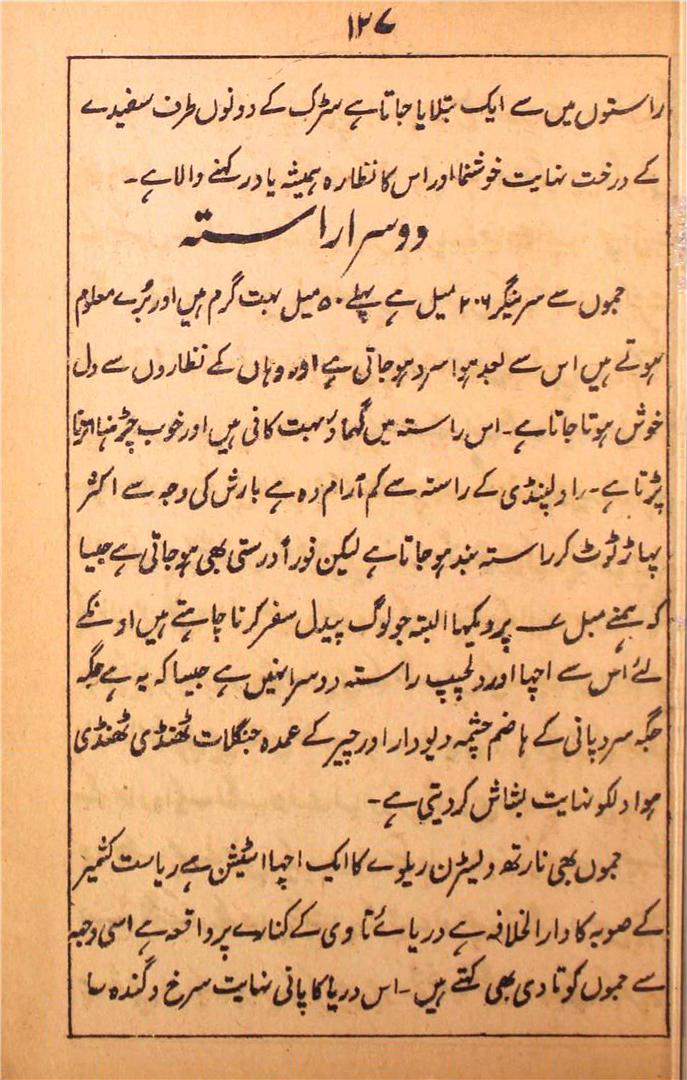 ۱۲۷
راستوں میں سے ایک بتلایا جاتا ہے سڑک کے دونوں طرف سفیدے
کے درخت نہایت خوشنما اور اس کا نظارہ ہمیشہ یاد رکھنے والا ہے۔
دوسرا راستہ
جموں سے سرینگر ۲۰۶ میل ہے پہلے ۵۰ میل بہت گرم ہیں اور بُرے معلوم
ہوتے ہیں اس سے بعد ہوا سرد ہو جاتی ہے اور وہاں کے نظاروں سے دل
خوش ہوتا جاتا ہے۔ اس راستہ میں گھماؤ بہت کافی ہیں اور خوب چڑہنا اترنا
پڑتا ہے۔ راولپنڈی کے راستہ سے کم آرام دہ ہے بارش کی وجہ سے اکثر
پہاڑ ٹوٹ کر راستہ بند ہو جاتا ہے لیکن فوراً درستی بھی ہو جاتی ہے جیسا
کہ ہمنے میل پر دیکھا البتہ جو لوگ پیدل سفر کرنا چاہتے ہیں اونکے
لئے اس سے اچہا اور دلچسپ راستہ دوسرا نہیں ہے جیسا کہ یہ ہے جگہ
جگہ سرد پانی کے ہاضم چشمہ دیودار اور چیر کے عمدہ جنگلات ٹھنڈی ٹھنڈی
ہوا دلکو نہایت بشاش کر دیتی ہے۔
جموں بھی نارتھ ویسٹرن ریلوے کا ایک اچہا اسٹیشن ہے ریاست کشمیر
کے صوبہ کا دار الخلافہ ہے دریائے تاوی کے کنارے پر واقعہ ہے اسی وجہ
سے جموں کو تاوی بھی کہتے ہیں۔ اس دریا کا پانی نہایت سرخ و گندہ سا